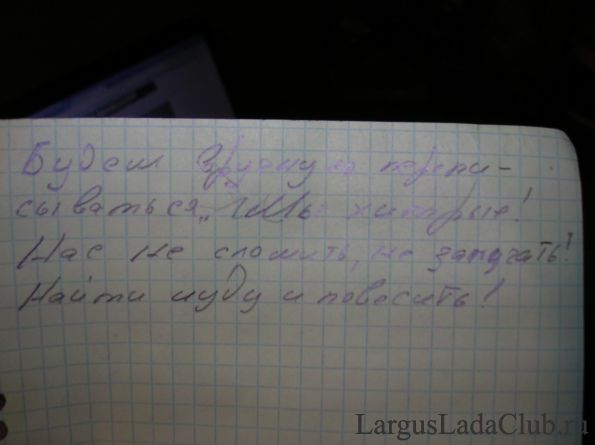 Будем вручную перепи-
сываться, Мы хитрые!
Нас не сломить, не запугать!
Найти иуду и повесить!
LargusLadaClub.ru